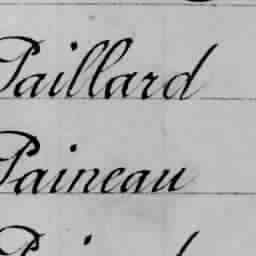 Paillard
Paineau